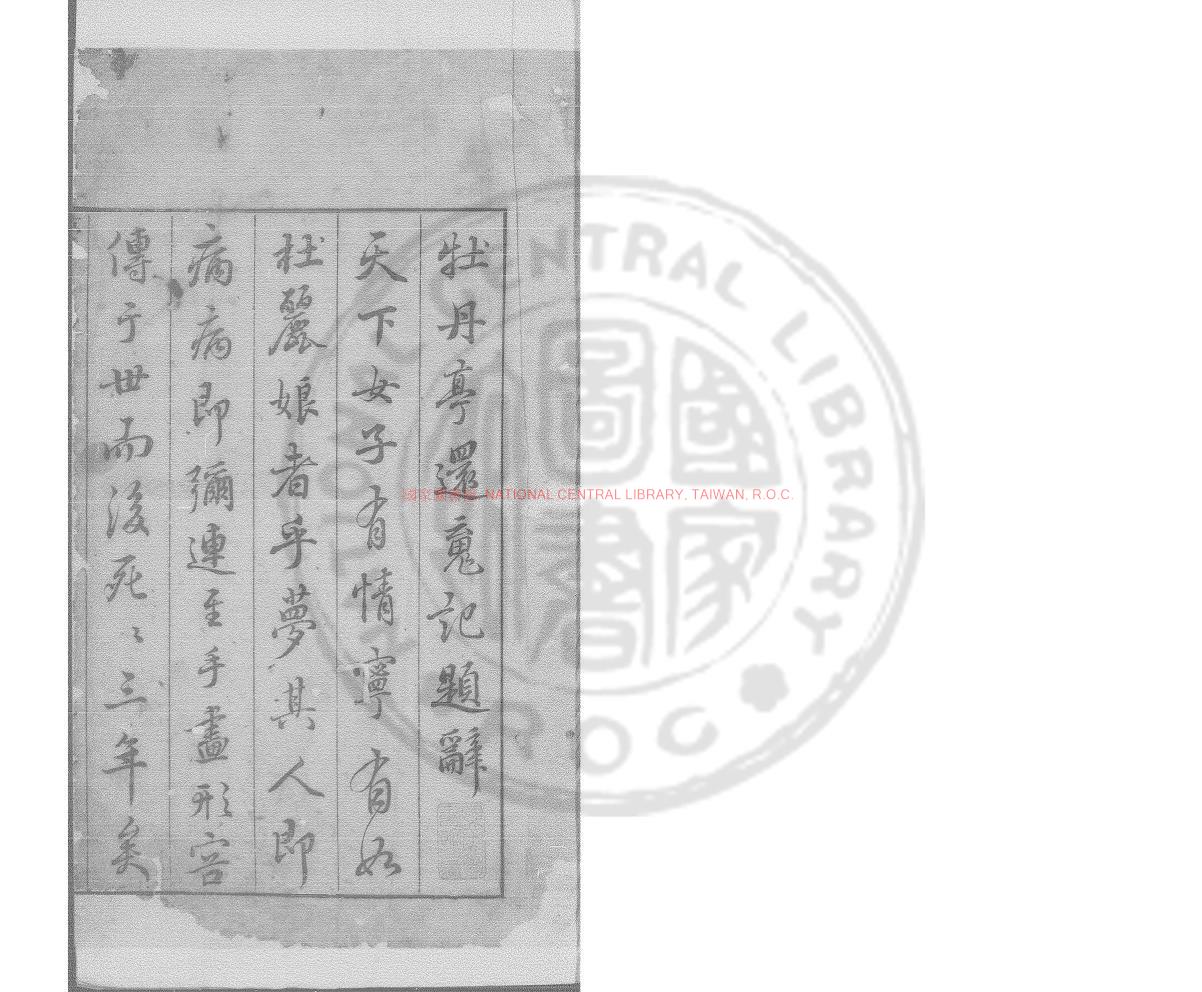 牡丹亭還魂記題辭
天下女子有情寧有如
杜麗娘者乎夢其人即
病病即彌連至手畫形容
傳于世而後死〻三年矣
國家圖書館, NATIONAL CENTRAL LIBRARY, TAIWAN, R.O.C.
NATIONAL CENTRAL LIBRARY
R O C
國家圖書